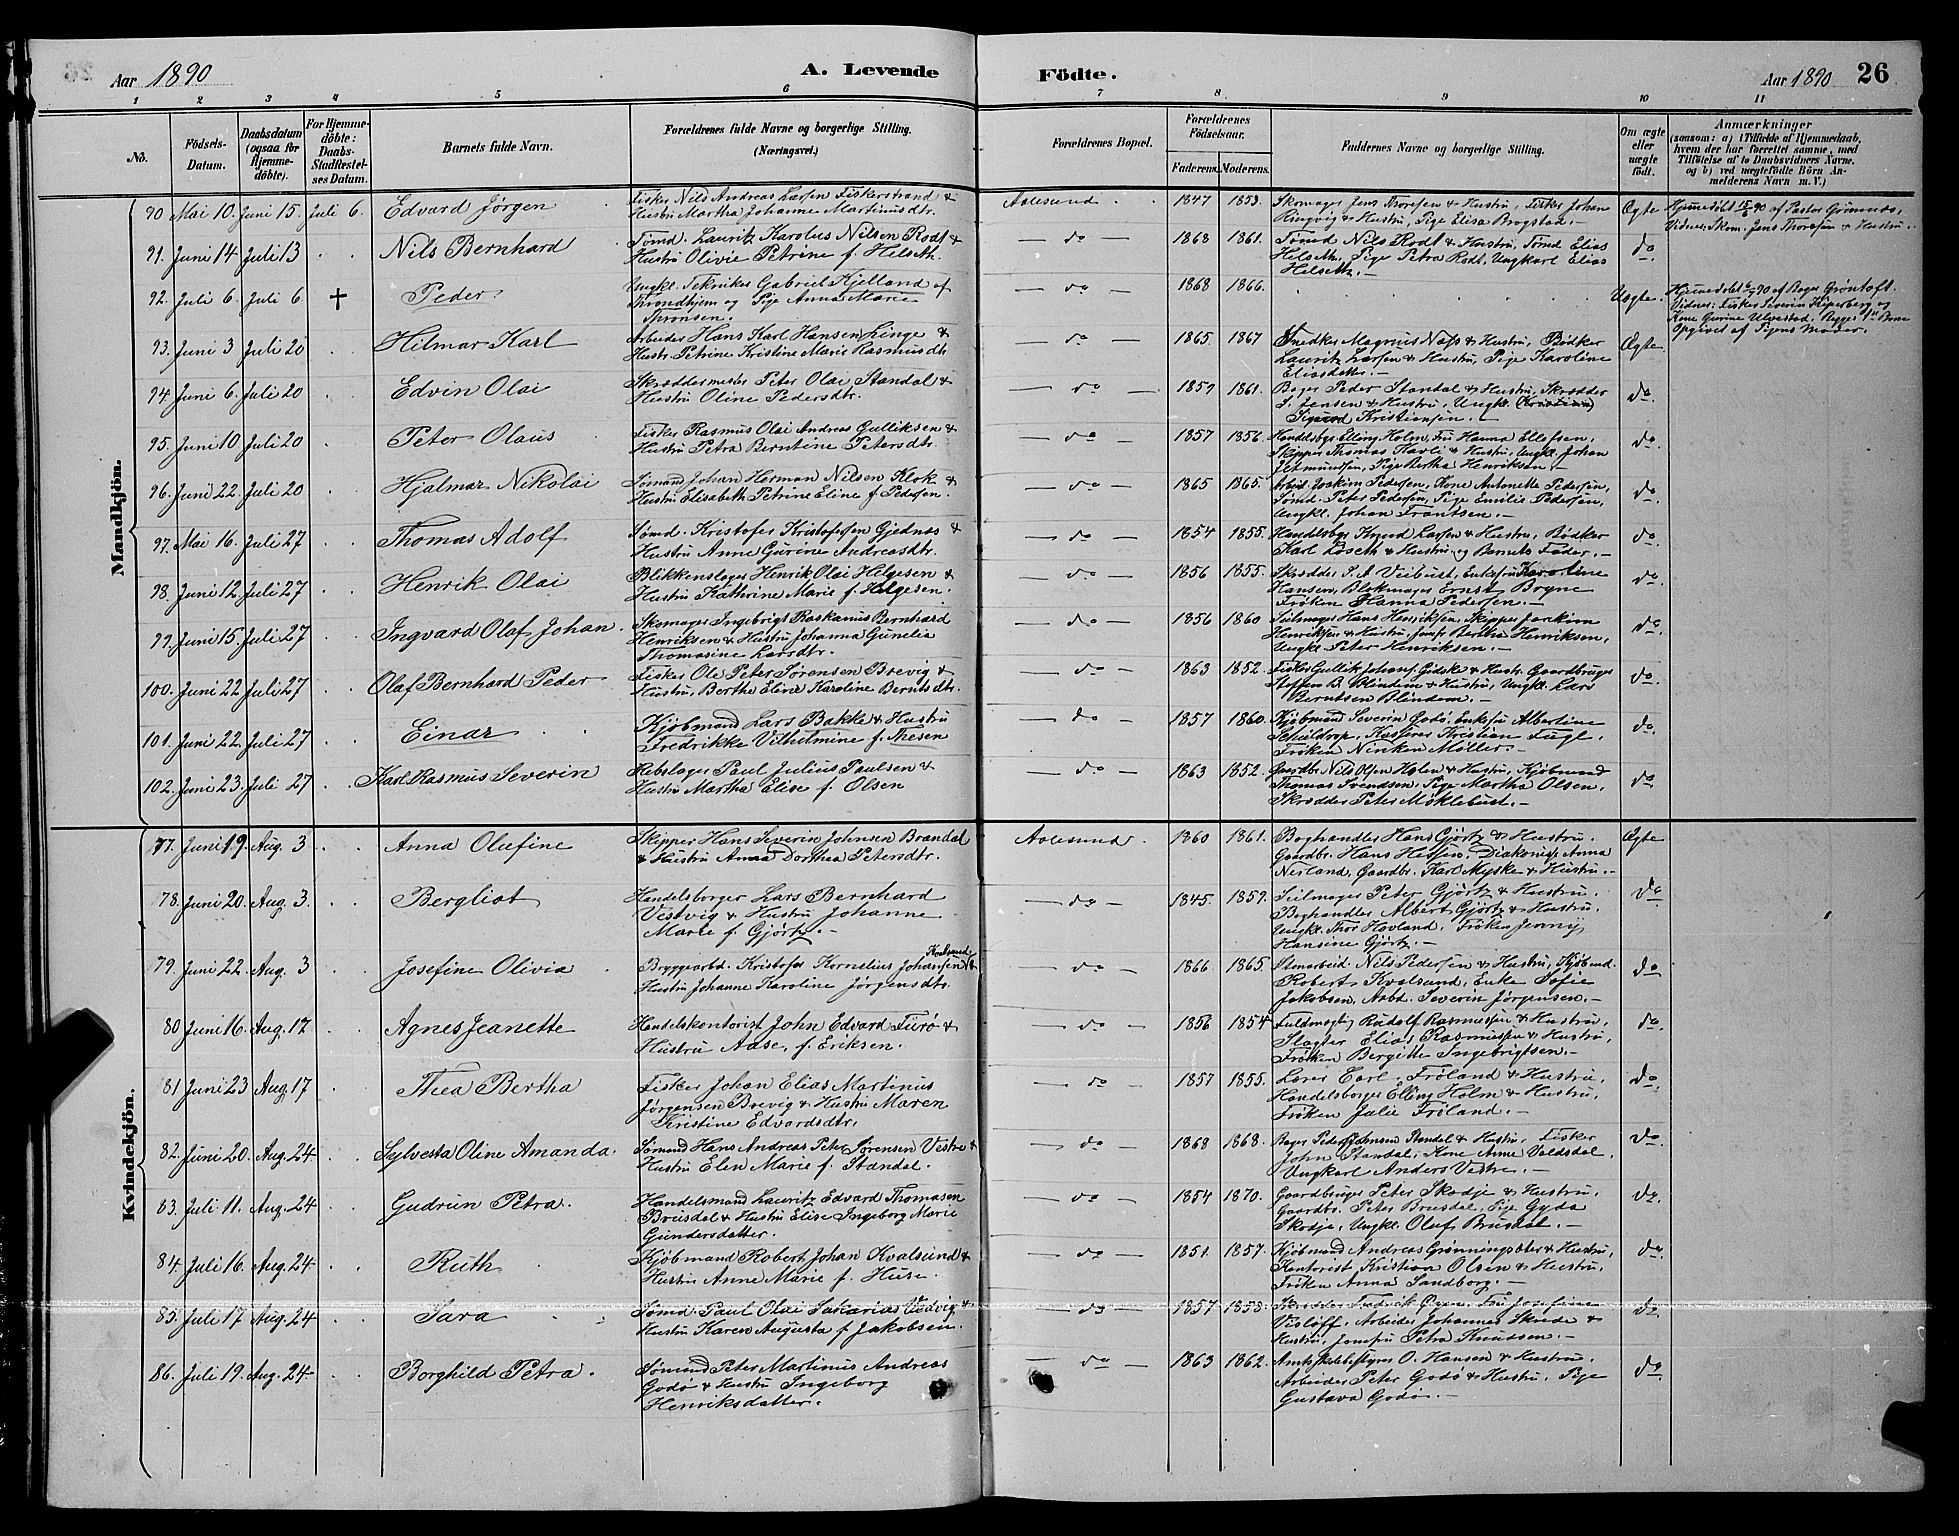 Aar 1890
A. Levende
Födte.
Aar 1890
26
1 2 3 4 5 6 7 8 9 10 11
No.
Födsels-Datum.
Daabsdatum (ogsaa for Hjemme-döbte).
For Hjemme-döbte: Daabs-Stadfæstelses Datum.
Barnets fulde Navn.
Forældrenes fulde Navne og borgerlige Stilling.
(Næringsvei.)
Forældrenes Bopæl.
Forældrenes Födselsaar.
Faderens. Moderens.
Faddernes Navne og borgerlige Stilling.
Om ægte eller uægte födt.
Anmærkninger
(saasom: a) i Tilfælde af Hjemmedaab, hvem der har forrettet samme, med Tilföielse af to Daabsvidners Navne, og b) ved uægtefödte Börn Anmelderens Navn m. V.)
Mandkjön.
90 Mai 10. Juni 15. Juli 6. Edvard Jörgen
Fisker Nils Andreas Larsen Fiskerstrand &
Hustru Martha Johanne Martinusdtr.
Aalesund 1847 1853.
Skomager Jens Thoresen & Hustru, Fisker Johan
Ringvig & Hustru, Pige Elisa Brogstad.
Ægte
Hjemmedøbt 15/6 90 af Pastor Grimnes,
Vidner, Skom. Jens Thoresen & Hustru.
91. Juni 14 Juli 13 Nils Bernhard
Sømd. Lauritz Karolus Nilsen Rodt &
Hustru Olivie Petrine f. Helseth.
do 1868 1861.
Sømd Nils Rodt & Hustru, Sømd Elias
Helseth, Pige Petra Rodt, Ungkarl Elias
Helseth.
do
92. Juli 6. Juli 6 † Peder
Ungkl. Tekniker Gabriel Kjelland af
Throndhjem og Pige Anna Marie
Thronsen.
do 1868 1866.
Uægte.
Hjemmedøbt 6/7 90 af Bager Grøntoft.
Vidner: Fisker Severin Kiperberg og
Kone Gurine Ulvestad. Begges 1ste Barn
Opgivet af Pigens Moder.
93. Juni 3 Juli 20 Hilmar Karl
Arbeider Hans Karl Hansen Linge &
Hustr. Petrine Kristine Marie Rasmusdtr
do 1865 1867
Snedker Magnus Næs & Hustru, Bödker
Lauritz Larsen & Hustru, Pige Karoline
Eliasdatter.
Ægte
94. Juni 6. Juli 20 Edvin Olai
Skræddermester Peter Olai Standal &
Hustru Oline Pedersdtr.
do 1859 1861.
Bager Peder Standal & Hustru, Skrædder
S. Jensen & Hustru, Ungkl. Kristian
Sigurd Kristiansen.
do.
95. Juni 10. Juli 20 Peter Olaus
Fisker Rasmus Olai Andreas Gulliksen &
Hustru Petra Berntine Petersdtr.
do 1857 1856.
Handelsbgr Elling Holm, Fru Hanna Ellefsen,
Skipper Thomas Havli & Hustru, Ungkl. Johan
Pige Bertha Henriksen.
do.
96. Juni 22 Juli 20 Hjalmar Nikolai
Sømand Johan Herman Nilsen Klok &
Hustru Elisabeth Petrine Eline f. Pedersen.
do 1865 1865.
Arbeid. Joakim Pedersen, Kone Antonette Pedersen,
Sømd. Peter Pedersen, Pige Emilie Pedersen,
Ungkl. Johan Frantsen.
do
97. Mai 16. Juli 27 Thomas Adolf
Sømd. Kristofer Kristofersen Gjednæs &
Hustru Anne Gurine Andreasdtr.
do 1854 1855.
Handelsbgr Knud Larsen & Hustru, Bødker
Karl Løseth & Hustru og Barnets Fader.
do
98. Juni 12. Juli 27 Henrik Olai
Blikkenslager Henrik Olai Helgesen &
Hustru Kathrine Marie f. Helgesen.
do 1856 1855.
Skrædder S. A. Veibust, Enkefru Karoline
Hansen, Blikmager Ernst Bryne
Frøken Hanna Pedersen.
do.
99. Juni 15. Juli 27 Ingvard Olaf Johan.
Skomager Ingebrigt Raskanus Bernhard
Henriksen & Hustru Johanna Gunelia
Thomasine Larsdtr.
do 1856 1860
Seilmager Hans Henriksen, Skipper Joakim
Henriksen & Hustru, Jomfr Bertha Henriksen,
Ungkl. Peter Henriksen.
do.
100. Juni 22 Juli 27 Olaf Bernhard Peder
Fisker Ole Peter Sørensen Brevig &
Hustru, Berthe Eline Karoline Berntsdtr.
do 1863 1852.
Fisker Gullik Johans. Gjøsk & Hustr. Gaardbruger
Steffen B. Blindem & Hustru, Ungkl. Lars
Berntsen Blindem.
do.
101. Juni 22. Juli 27. Einar
Kjøbmand Lars Bakke & Hustru
Fredrikke Vilhelmine f. Thesen
do 1857 1860.
Kjøbmand Severin Godø, Enkefru Albertine
Schieldrop, Kasserer Kristian Fugl.
Frøken Ninken Møller.
do
102. Juni 23. Juli 27 Karl Rasmus Severin
Rebslager Paul Julius Paulsen &
Hustru Martha Elise f. Olsen
do 1863 1852.
Gaardbr. Nils Olsen Holen & Hustru, Kjøbmand
Thomas Svendsen, Pige Martha Olsen,
Skrædder Peter Møklebust.
do
Kvindekjön.
77. Juni 19. Aug. 3 Anna Olufine
Skipper Hans Severin Johnsen Brandal
& Hustru Anna Dorthea Petersdtr.
Aalesund. 1860 1861.
Boghandler Hans Gjørtz & Hustru.
Gaardbr. Hans Hessen, Diakonisse Anna
Nesland, Gaardbr. Karl Myske & Hustru.
Ægte
78. Juni 20. Aug. 3. Bergliot
Handelsborger Lars Bernhard
Vestvig & Hustru Johanne
Marie f. Gjørtz.
do 1845. 1859.
Seilmager Peter Gjørtz & Hustru.
Boghandler Albert Gjørtz & Hustru.
Ungkl. Thor Hovland. Frøken Jenny
Hansine Gjørtz.
do
79. Juni 22. Aug. 3 Josefine Olivia
Kvalsund
Bryggearbd. Kristofer Kornelius Johansen &
Hustru Johanne Karoline Jørgensdtr.
do 1866 1865.
Stenarbeid. Nils Pedersen & Hustru, Kjøbmd.
Robert Kvalsund, Enke Sofie
Jakobsen, Arbd. Severin Jørgensen.
do
80 Juni 16. Aug. 17 Agnes Jeanette
Handelskontorist John Edvard Furø &
Hustru Aase, f. Eriksen.
do 1856 1854
Fuldmægtig Rudolf Rasmussen & Hustru,
Slagter Elias Rasmussen & Hustru,
Frøken Bergitte Ingebrigtsen.
do.
81 Juni 23 Aug. 17 Thea Bertha
Fisker Johan Elias Martinus
Jørgensen Brevig & Hustru Maren
Kristine Edvardsdtr.
do 1857 1855.
Lærer Carl Frøland & Hustru,
Handelsborger Elling Holm & Hustru,
Frøken Julie Frøland.
do.
82. Juni 20. Aug. 24. Sylvesta Oline Amanda.
Sømand Hans Andreas Peter Sørensen Vestre &
Hustru Elen Marie f. Standal.
do 1868 1868.
Bager Peder Jensen Standal & Hustru, Fisker
John Standal, Kone Anne Valdsdal,
Ungkarl Anders Vestre.
do.
83. Juli 11. Aug. 24 Gudrun Petra.
Handelsmand Lauritz Edvard Thomasen
Brusdal & Hustru Elise Ingeborg Marie
Gundersdatter.
do 1854 1870.
Gaardbruger Peter Skodje & Hustru.
Gaardbr. Peter Brusdal, Pige Gyda
Skodje, Ungkl. Oluf Brusdal.
do.
84. Juli 16. Aug. 24. Ruth
Kjøbmand Robert Johan Kvalsund &
Hustru Anne Marie f. Huse.
do 1851. 1857.
Kjøbmand Andreas Grønningsæter & Hustru,
Kontorist Kristian Olsen & Hustru,
Frøken Anna Sandborg.
do.
85. Juli 17 Aug. 24 Sara
Sømd. Paul Olai Sakarias Vedvig &
Hustru Karen Augusta f. Jakobsen.
do 1857 1858.
Skrædder Fredrik Øyen, Fru Josefine
Visløff, Arbeider Johannes Skude &
Hustru, Jomfru Petra Knudsen.
do.
86. Juli 19. Aug. 24 Borghild Petra.
Sømand Peter Martinus Andreas
Godø & Hustru Ingeborg
Henriksdatter.
do 1863 1862.
Amtsskolebestyrer O. Hansen & Hustru.
Arbeider Peter Godø & Hustru, Pige
Gustava Godø.
do.